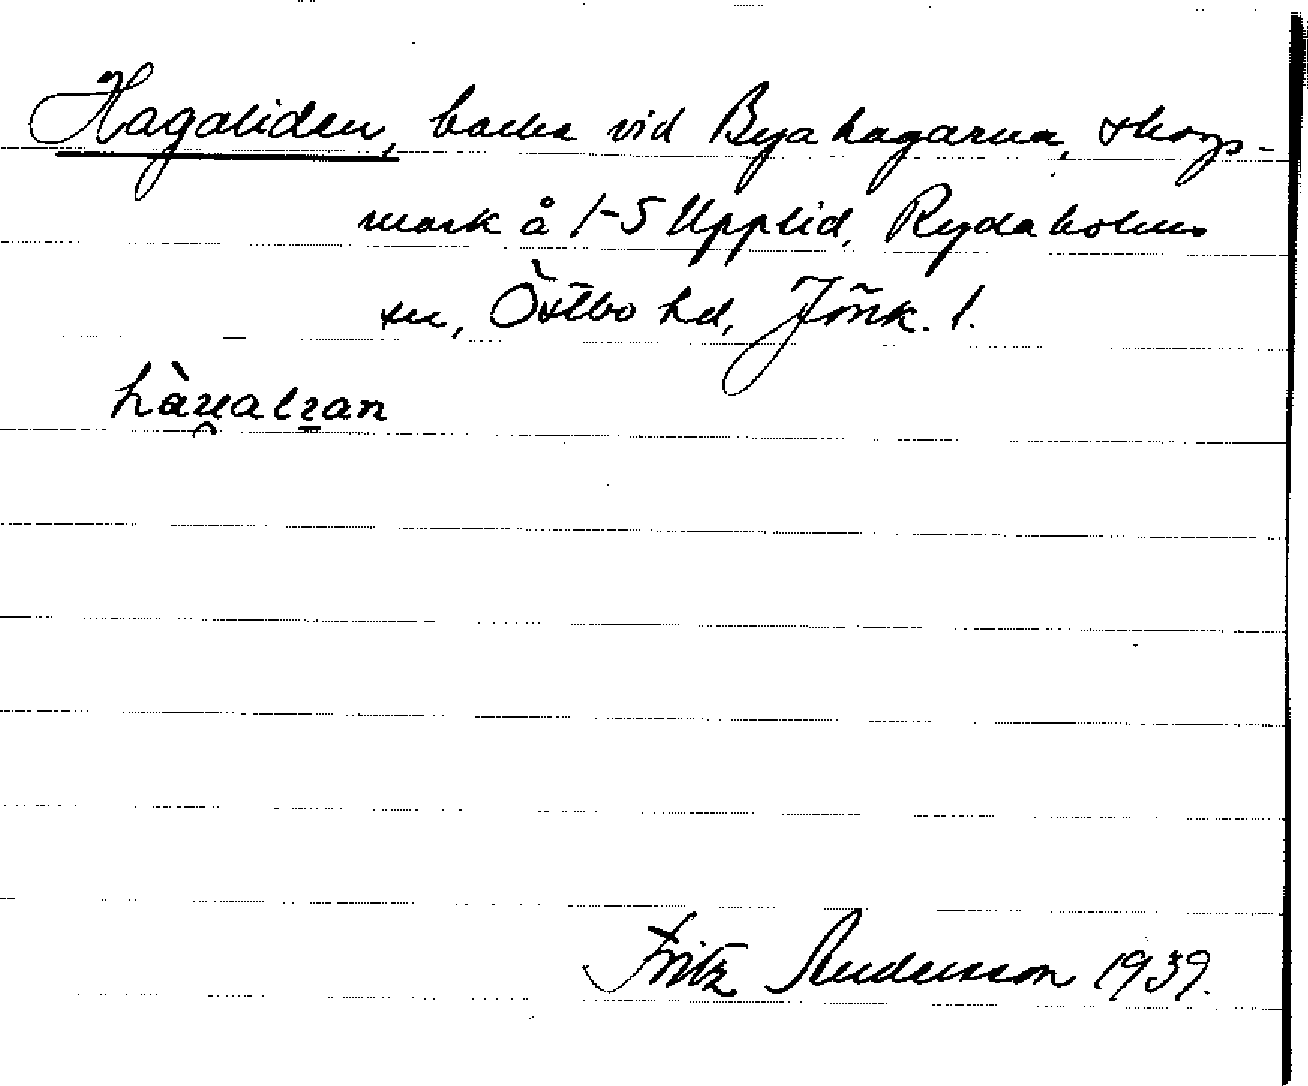 Hagaliden, backe vid Byahagarna, skogs-
mark å 1-5 Upplid, Rydaholms
sn, Östbo hd, Jönk. l.
Fritz Andersson 1939.